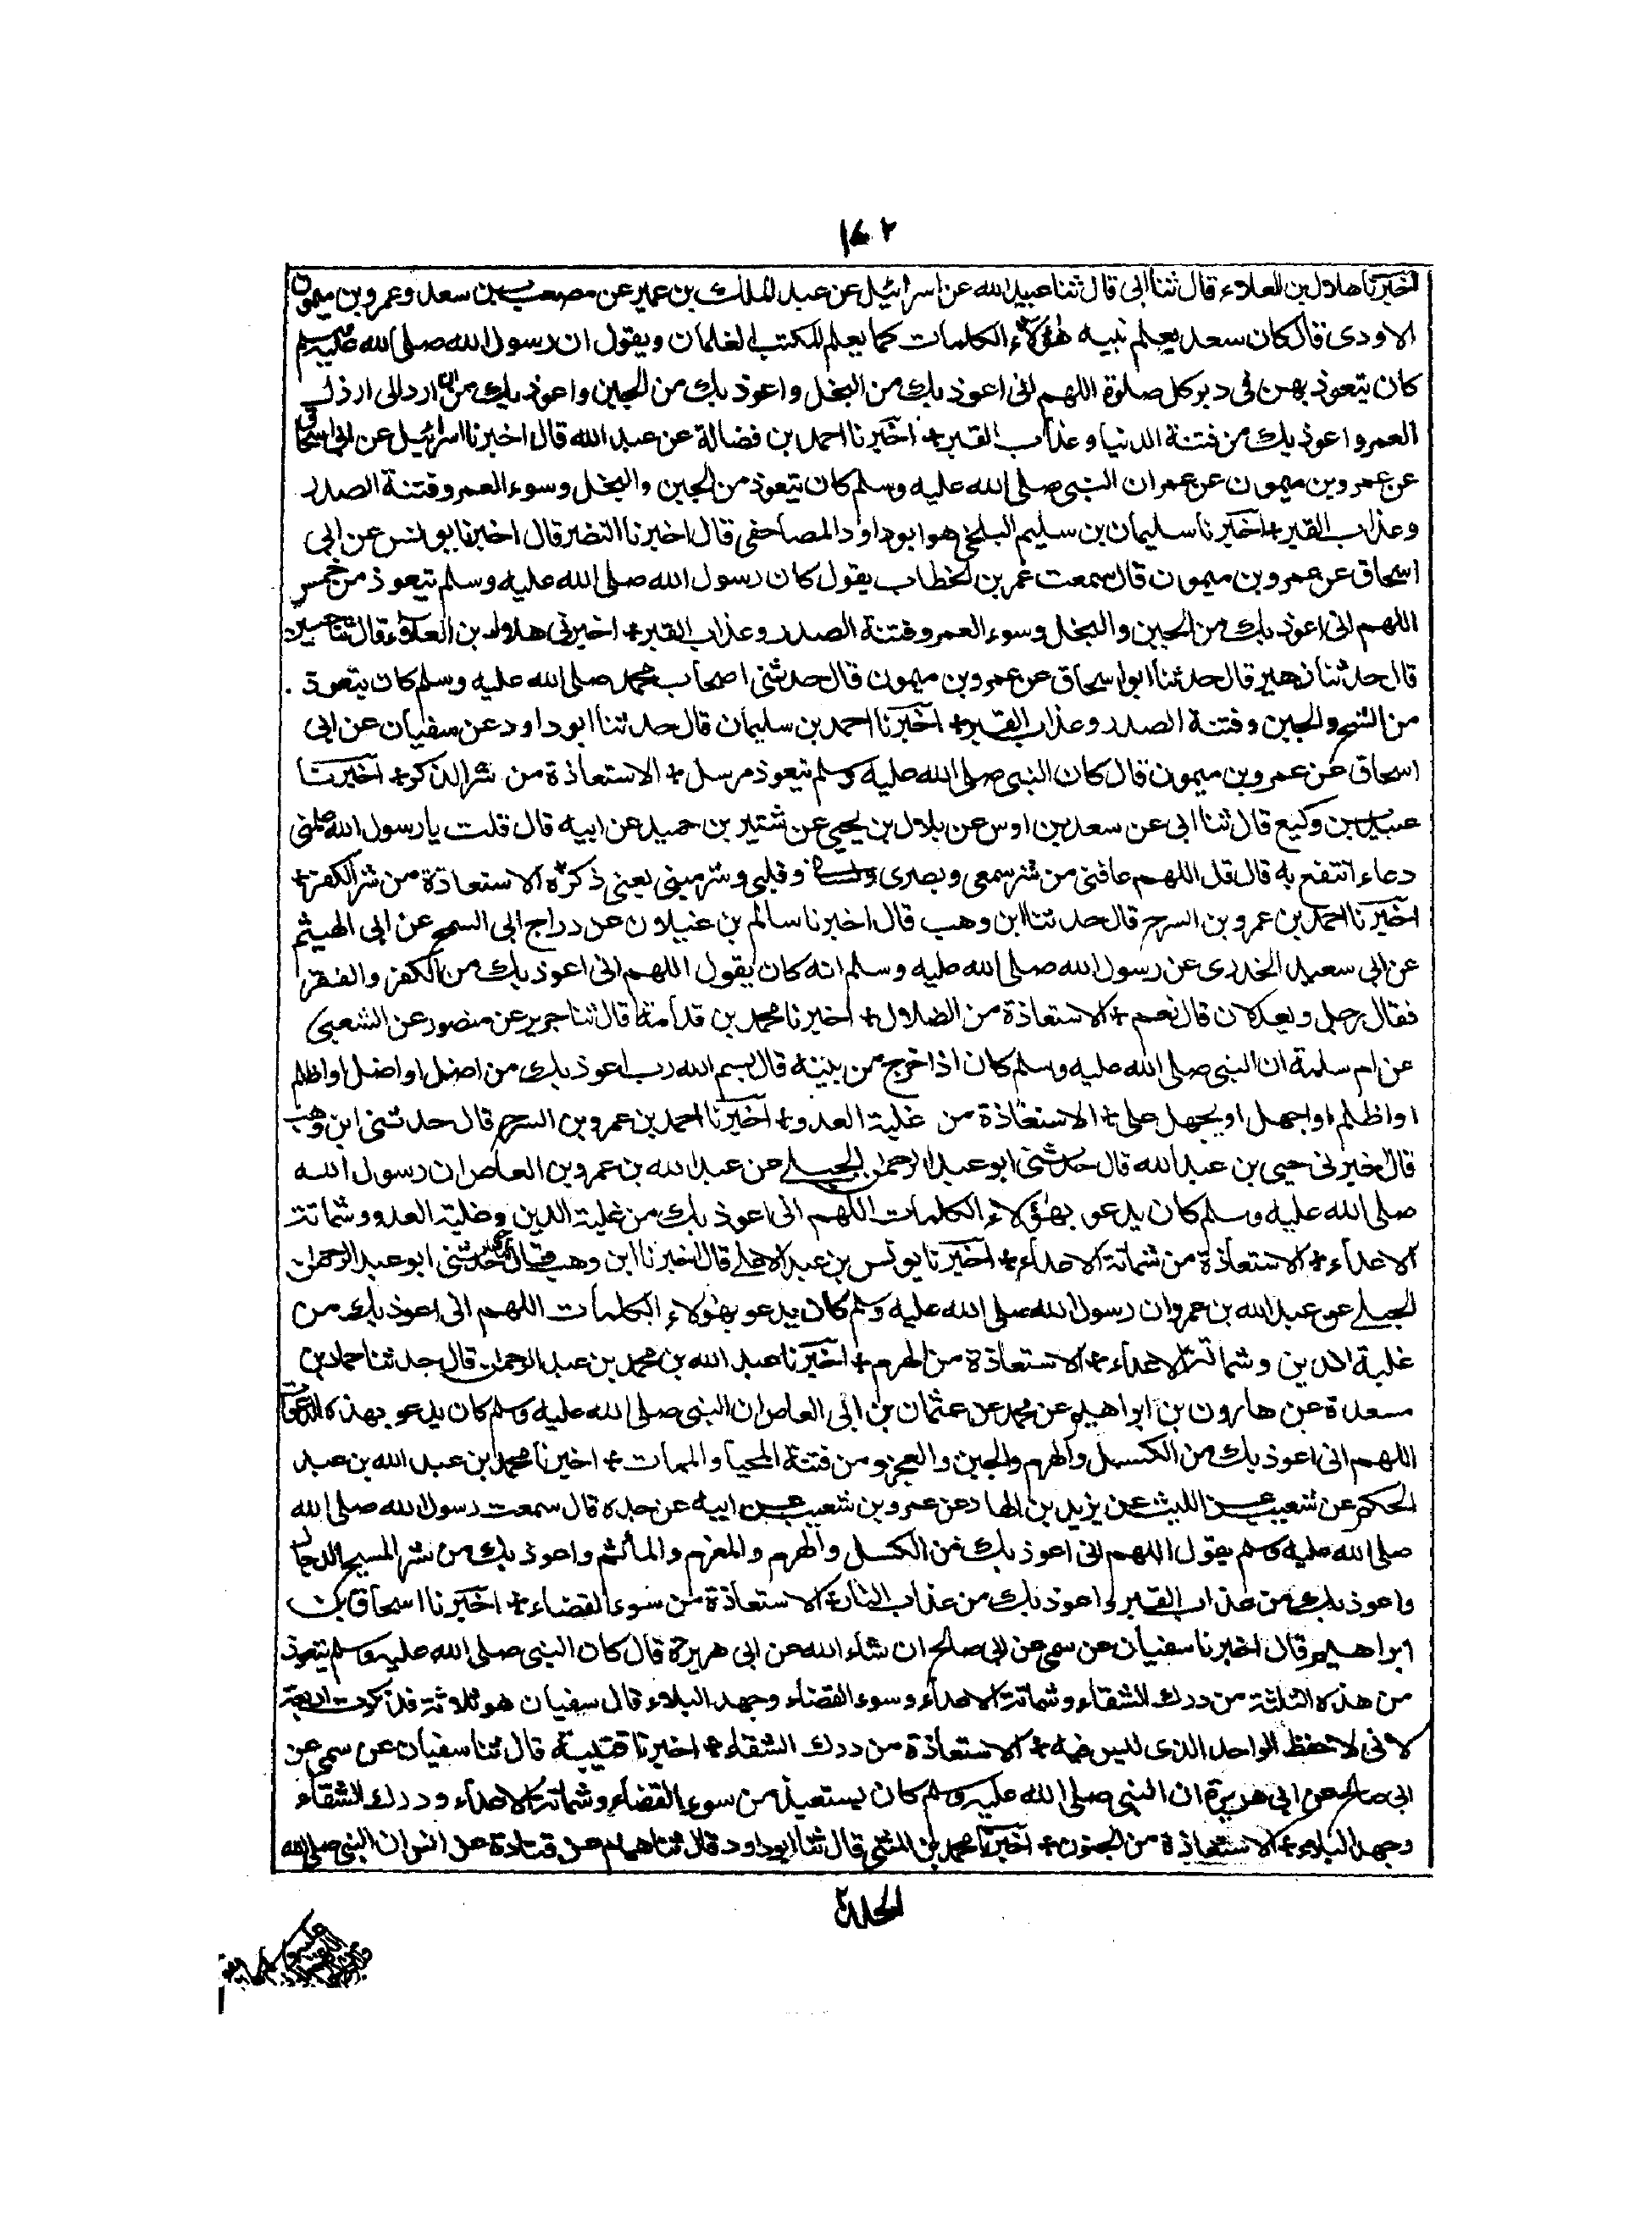 ١٤٢
اخبرنا هلال بن العلاء قال ثنا ابى قال ثنا عبيد الله عن اسرائيل عن عبد الملك بن عمير عن مصعب بن سعد وعمرو بن ميمون
الاودى قال كان سعد يعلم بنيه هؤلاء الكلمات كما يعلم المكتب الغلمان ويقول ان رسول الله صلى الله عليه وسلم
كان يتعوذ بهن فى دبر كل صلوة اللهم انى اعوذ بك من البخل واعوذ بك من الجبن واعوذ بك من ان ارد الى ارذل
العمر واعوذ بك من فتنة الدنيا وعذاب القبر + اخبرنا احمد بن فضالة عن عبد الله قال اخبرنا اسرائيل عن ابى اسحاق
عن عمرو بن ميمون عن عمر ان النبى صلى الله عليه وسلم كان يتعوذ من الجبن والبخل وسوء العمر وفتنة الصدر
وعذاب القبر + اخبرنا سليمان بن سليم البلخى هو ابو داود المصاحفى قال اخبرنا النضر قال اخبرنا يونس عن ابى
اسحاق عن عمرو بن ميمون قال سمعت عمر بن الخطاب يقول كان رسول الله صلى الله عليه وسلم يتعوذ من خمس
اللهم انى اعوذ بك من الجبن والبخل وسوء العمر وفتنة الصدر وعذاب القبر + اخبرنى هلال بن العلاء قال ثنا حسين
قال حدثنا زهير قال حدثنا ابو اسحاق عن عمرو بن ميمون قال حدثنى اصحاب محمد صلى الله عليه وسلم كان يتعوذ
من الشح والجبن وفتنة الصدر وعذاب القبر + اخبرنا احمد بن سليمان قال حدثنا ابو داود عن سفيان عن ابى
اسحاق عن عمرو بن ميمون قال كان النبى صلى الله عليه وسلم يتعوذ مرسل + الاستعاذة من شر الذكر + اخبرنا
عبيد بن وكيع قال ثنا ابى عن سعد بن اوس عن بلال بن يحيى عن شتير بن حميد عن ابيه قال قلت يا رسول الله علمنى
دعاء انتفع به قال قل اللهم عافنى من شر سمعى وبصرى ولسانى وقلبى وشر منيى يعنى ذكره الاستعاذة من شر الكفر +
اخبرنا احمد بن عمرو بن السرح قال حدثنا ابن وهب قال اخبرنا سالم بن غيلان عن دراج ابى السمح عن ابى الهيثم
عن ابى سعيد الخدرى عن رسول الله صلى الله عليه وسلم انه كان يقول اللهم انى اعوذ بك من الكفر والفقر
فقال رجل ويعدلان قال نعم + الاستعاذة من الضلال + اخبرنا محمد بن قدامة قال ثنا جرير عن منصور عن الشعبى
عن ام سلمة ان النبى صلى الله عليه وسلم كان اذا خرج من بيته قال بسم الله رب اعوذ بك من ان ازل او اضل او اظلم
او اظلم او اجهل او يجهل على + الاستعاذة من غلبة العدو + اخبرنا احمد بن عمرو بن السرح قال حدثنى ابن وهب
قال اخبرنى حيى بن عبد الله قال حدثنى ابو عبد الرحمن الحبلى عن عبد الله بن عمرو بن العاص ان رسول الله
صلى الله عليه وسلم كان يدعو بهؤلاء الكلمات اللهم انى اعوذ بك من غلبة الدين وغلبة العدو وشماتة
الاعداء + الاستعاذة من شماتة الاعداء + اخبرنا يونس بن عبد الاعلى قال اخبرنا ابن وهب قال حدثنى ابو عبد الرحمن
الحبلى عن عبد الله بن عمرو ان رسول الله صلى الله عليه وسلم كان يدعو بهؤلاء الكلمات اللهم انى اعوذ بك من
غلبة الدين وشماتة الاعداء + الاستعاذة من الهرم + اخبرنا عبد الله بن محمد بن عبد الرحمن قال حدثنا حماد بن
مسعدة عن هارون بن ابراهيم عن محمد عن عثمان بن ابى العاص ان النبى صلى الله عليه وسلم كان يدعو بهذه الدعوات
اللهم انى اعوذ بك من الكسل والهرم والجبن والعجز ومن فتنة المحيا والممات + اخبرنا محمد بن عبد الله بن عبد
الحكم عن شعيب عن الليث عن يزيد بن الهاد عن عمرو بن شعيب عن ابيه عن جده قال سمعت رسول الله صلى الله
صلى الله عليه وسلم يقول اللهم انى اعوذ بك من الكسل والهرم والمغرم والمأثم واعوذ بك من شر المسيح الدجال
واعوذ بك من عذاب القبر واعوذ بك من عذاب النار + الاستعاذة من سوء القضاء + اخبرنا اسحاق بن
ابراهيم قال اخبرنا سفيان عن سمى عن ابى صالح ان شاء الله عن ابى هريرة قال كان النبى صلى الله عليه وسلم يتعوذ
من هذه الثلثة من درك الشقاء وشماتة الاعداء وسوء القضاء وجهد البلاء قال سفيان هو ثلاثة فذكرت اربعة
لانى لا احفظ الواحد الذى ليس فيه + الاستعاذة من درك الشقاء + اخبرنا قتيبة قال ثنا سفيان عن سمى عن
ابى صالح عن ابى هريرة ان النبى صلى الله عليه وسلم كان يستعيذ من سوء القضاء وشماتة الاعداء ودرك الشقاء
وجهد البلاء + الاستعاذة من الجنون + اخبرنا محمد بن المثنى قال ثنا ابو داود قال ثنا همام عن قتادة عن انس ان النبى صلى الله